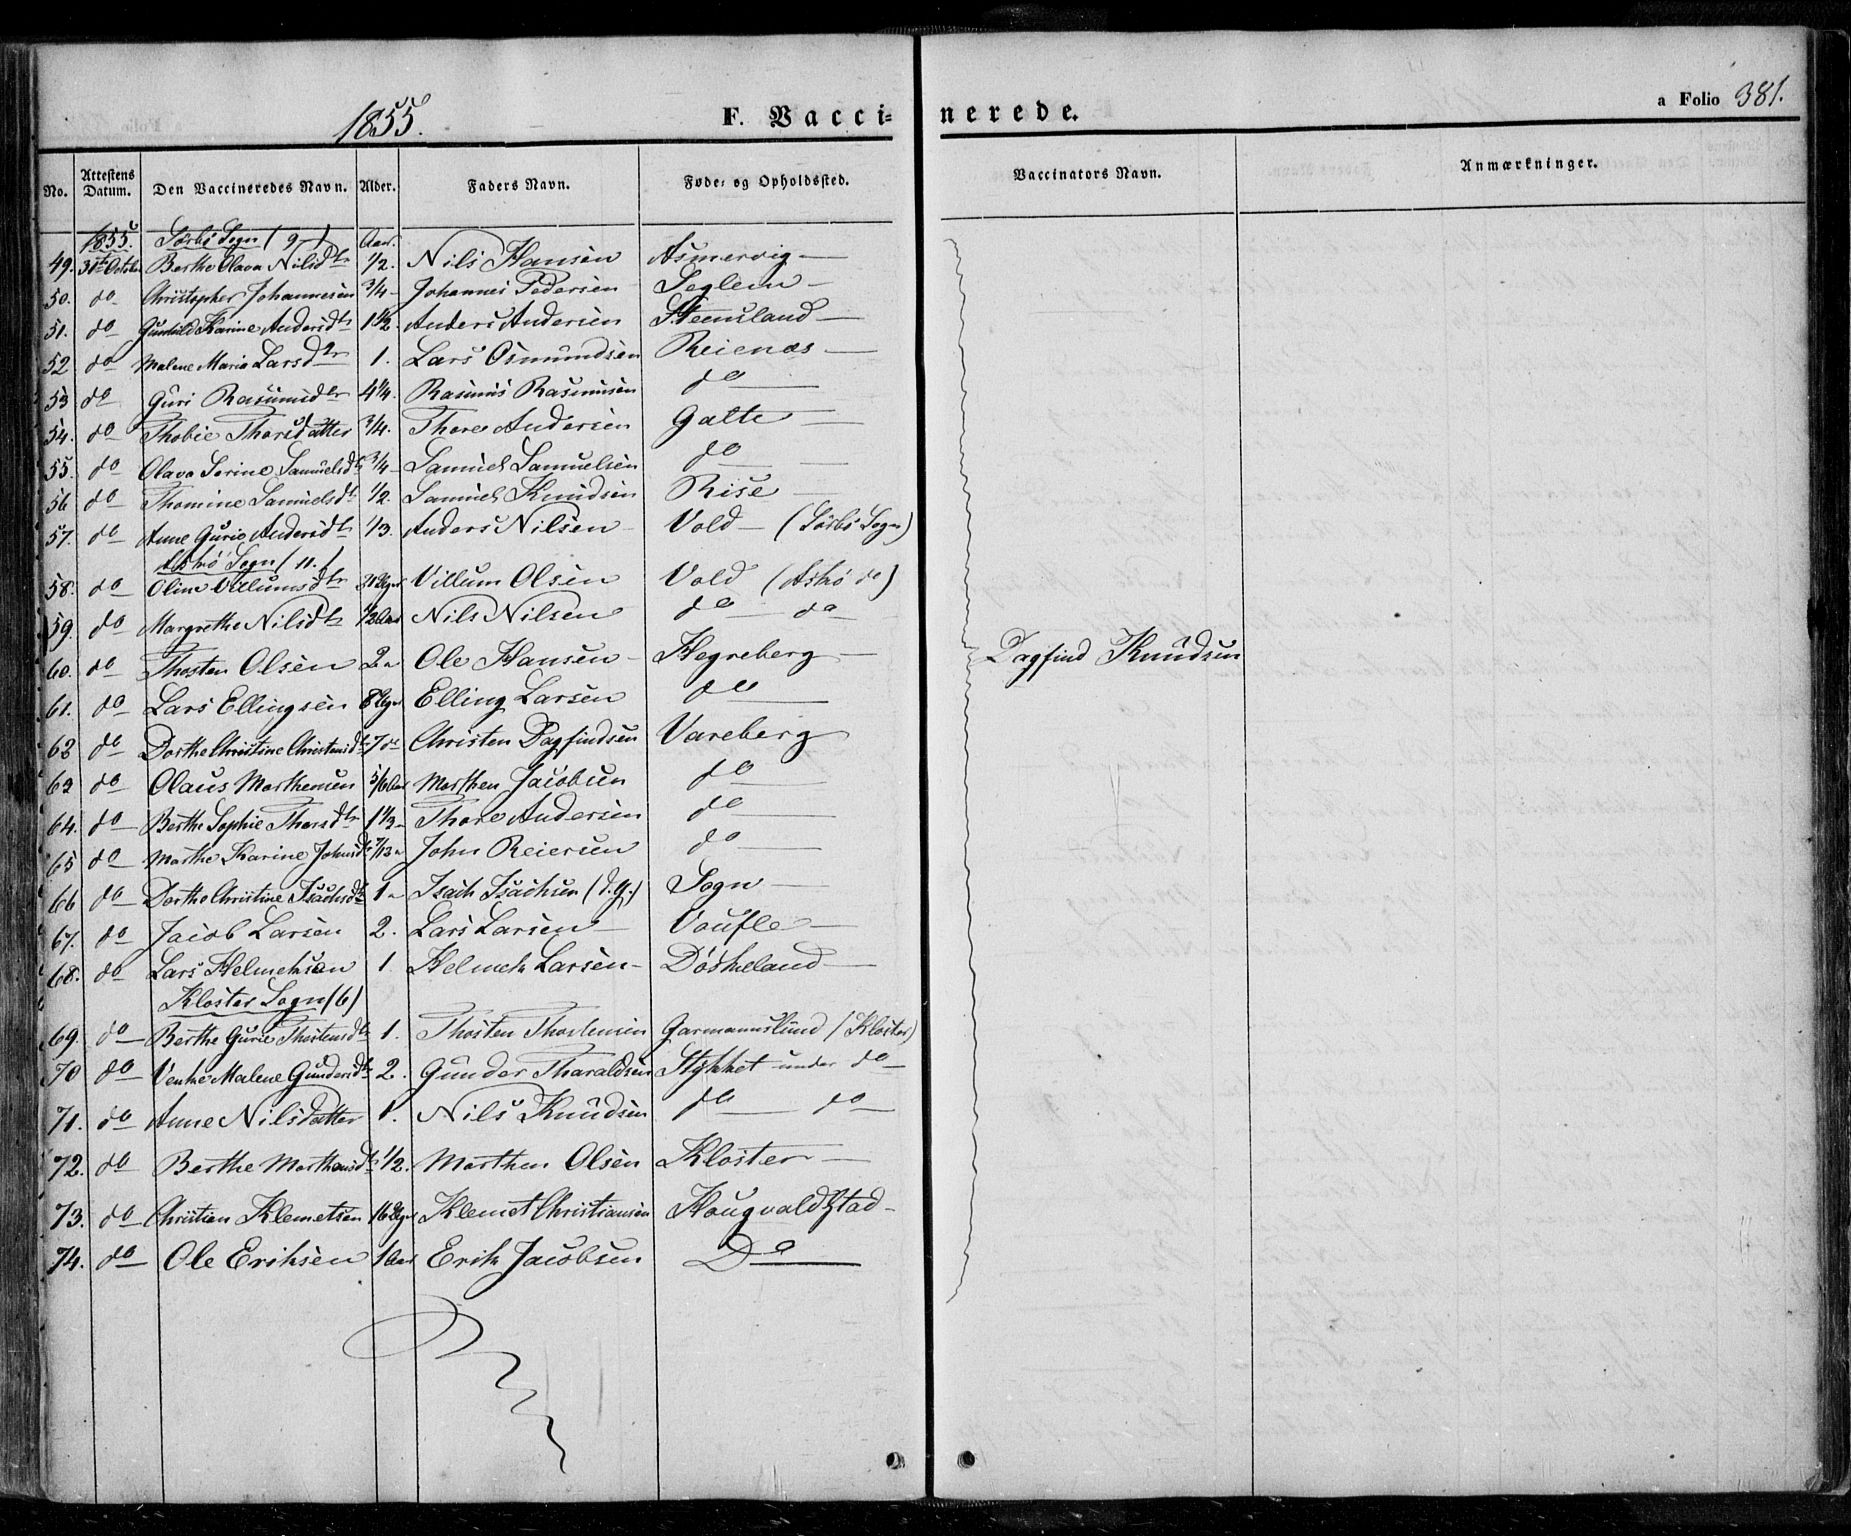 1855. F. Vaccinerede. a Folio 381.
No. Attestens Datum. Den Vaccineredes Navn. Alder. Faders Navn. Føde- og Opholdssted. Vaccinators Navn. Anmærkninger.
1855. Sørbø Sogn (9) Aar.
49. 31te Octobr Berthe Olava Nilsdtr 1/2. Nils Hansen Asmervig —
50. do Christopher Johannesen 3/4 Johannes Pedersen Seglem —
51. do Gunhild Karine Andersdtr 1 1/2. Anders Andersen Steensland —
52 do Malene Maria Larsdtr 1. Lars Osmundsen Reienæs —
53 do Guri Rasmusdtr 4 1/4. Rasmus Rasmusen do —
54. do Thobie Thorsdatter 3/4. Thore Andersen Galte —
55. do Olava Serine Samuelsdtr 3/4 Samuel Samuelsen do —
56 do Thomine Samuelsdtr 1/2. Samuel Knudsen Rise —
57. do Anne Gurie Andersdtr 1/3. Anders Nilsen Vold — (Sørbø Sogn)
Askø Sogn (11.)
58. do Oline Villumsdtr Uger Villum Olsen Vold (Askø do)
59. do Margrethe Nilsdtr 1/2 Aar Nils Nilsen do — do —
60. do Thosten Olsen 2 " Ole Hansen Hegreberg — Dagfind Knudsen
61. do Lars Ellingsen 8 Uger Elling Larsen do —
62 do Dorthe Christine Christensdtr 7 do Christen Dagfindsen Vareberg
63 do Olaus Morthensen 5/6 Aar Morthen Jacobsen do —
64. do Berthe Sophie Thorsdtr 1 1/2 Thore Andersen do —
65 do Marthe Karine Johnsdtr " John Reiersen do —
66 do Dorthe Christine Isachsdtr 1 " Isach Isachsen (d. y.) Sogn —
67. do Jacob Larsen 2. Lars Larsen Voufle —
68. do Lars Helmeksen 1. Helmek Larsen Døskeland —
Kloster Sogn (6)
69. do Berthe Gurie Thostensdtr 1. Thosten Thostensen Garmannslund (Kloster)
70 do Venke Malene Gundersdtr 2. Gunder Tharaldsen Stykket under do —
71. do Anne Nilsdatter 1. Nils Knudsen do — do —
72. do Berthe Morthensdtr 1/2. Morthen Olsen Kloster —
73. do Christian Klemetsen 16 Uger Klemet Christiansen Hougvaldstad —
74. do Ole Eriksen 1 Aar Erik Jacobsen Do —